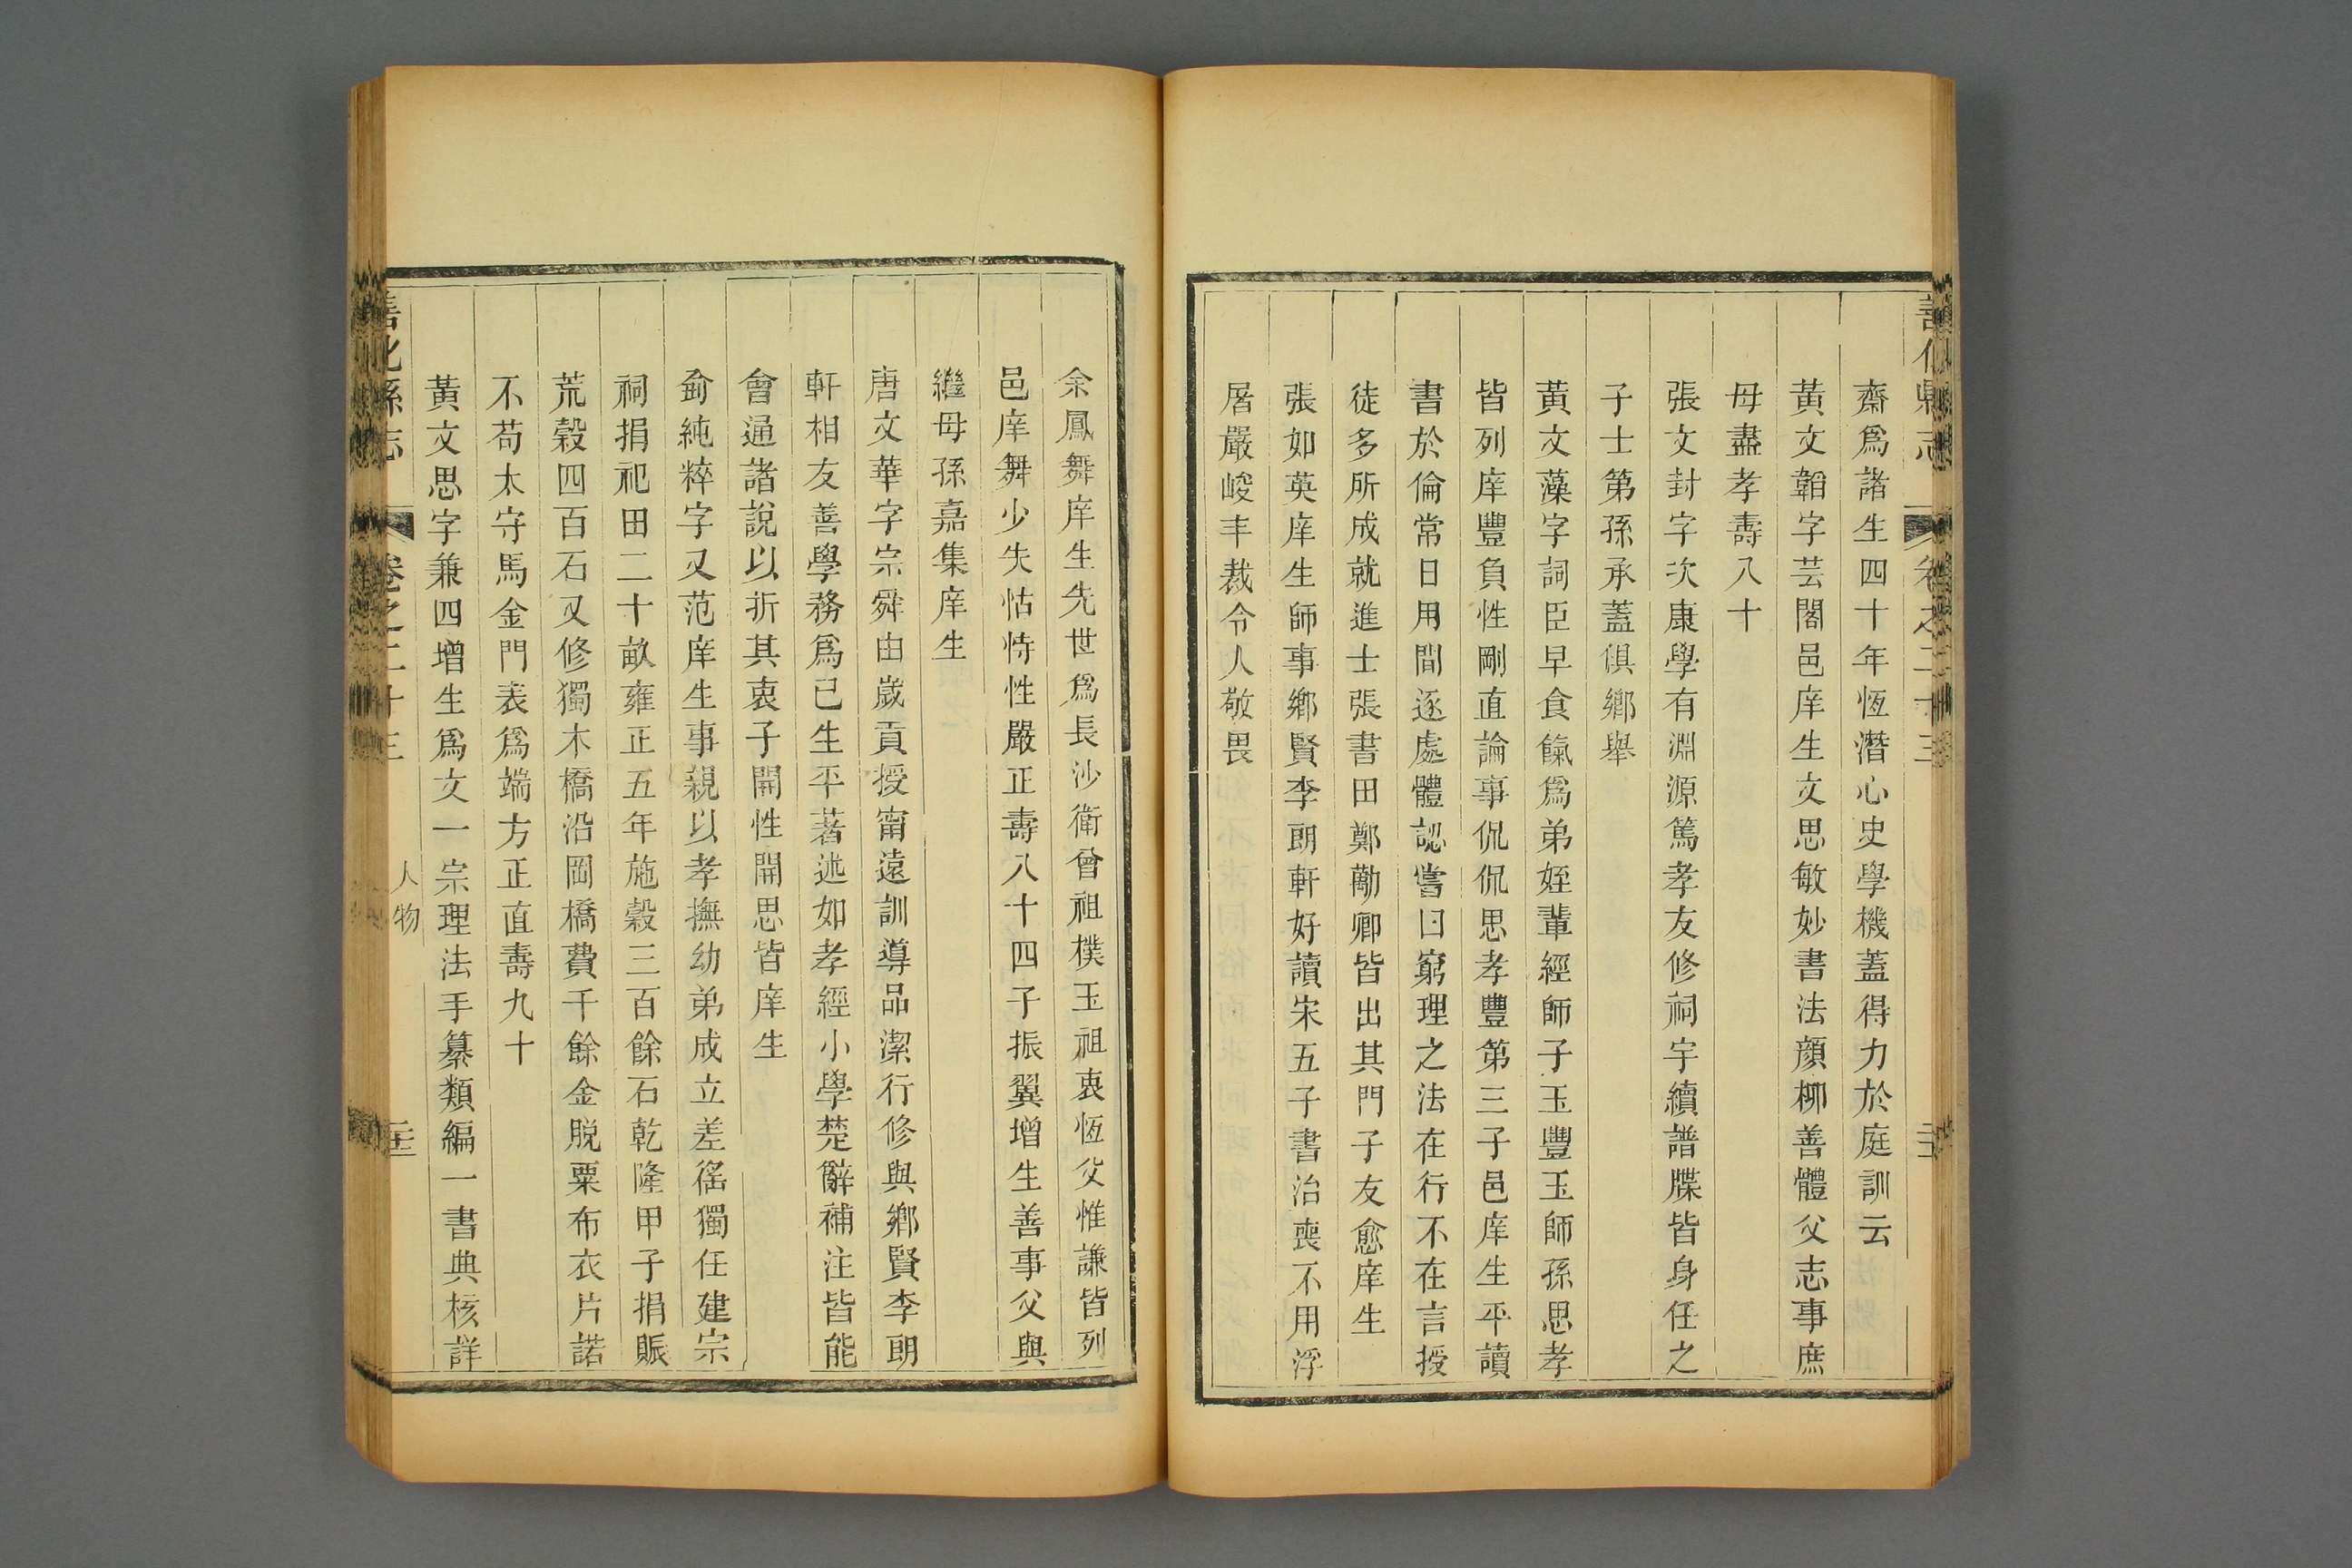 善化縣志 卷之二十三
齋爲諸生四十年恆潛心史學機蓋得力於庭訓云
黃文韜字芸閣邑庠生文思敏妙書法顔柳善體父志事庶
母盡孝壽八十
張文封字次康學有淵源篤孝友修祠宇續譜牒皆身任之
子士第孫承蓋俱鄉舉
黃文藻字詞臣早食餼爲弟姪輩經師子玉豐玉師孫思孝
皆列庠豐負性剛直論事侃侃思孝豐第三子邑庠生平讀
書於倫常日用間逐處體認嘗曰窮理之法在行不在言授
徒多所成就進士張書田鄭勱卿皆出其門子友愈庠生
張如英庠生師事鄉賢李朗軒好讀宋五子書治喪不用浮
屠嚴峻丰裁令人敬畏
余鳳舞庠生先世爲長沙衛曾祖樸玉祖衷恆父惟謙皆列
邑庠舞少失怙恃性嚴正壽八十四子振翼增生善事父與
繼母孫嘉集庠生
唐文華字宗舜由歲貢授甯遠訓導品潔行修與鄉賢李朗
軒相友善學務爲已生平著述如孝經小學楚辭補注皆能
會通諸說以折其衷子開性開思皆庠生
俞純粹字又范庠生事親以孝撫幼弟成立差徭獨任建宗
祠捐祀田二十畝雍正五年施穀三百餘石乾隆甲子捐賑
荒穀四百石又修獨木橋沿岡橋費千餘金脫粟布衣片諾
不苟太守馬金門表爲端方正直壽九十
黃文思字兼四增生爲文一宗理法手纂類編一書典核詳
善化縣志 卷之二十三 人物